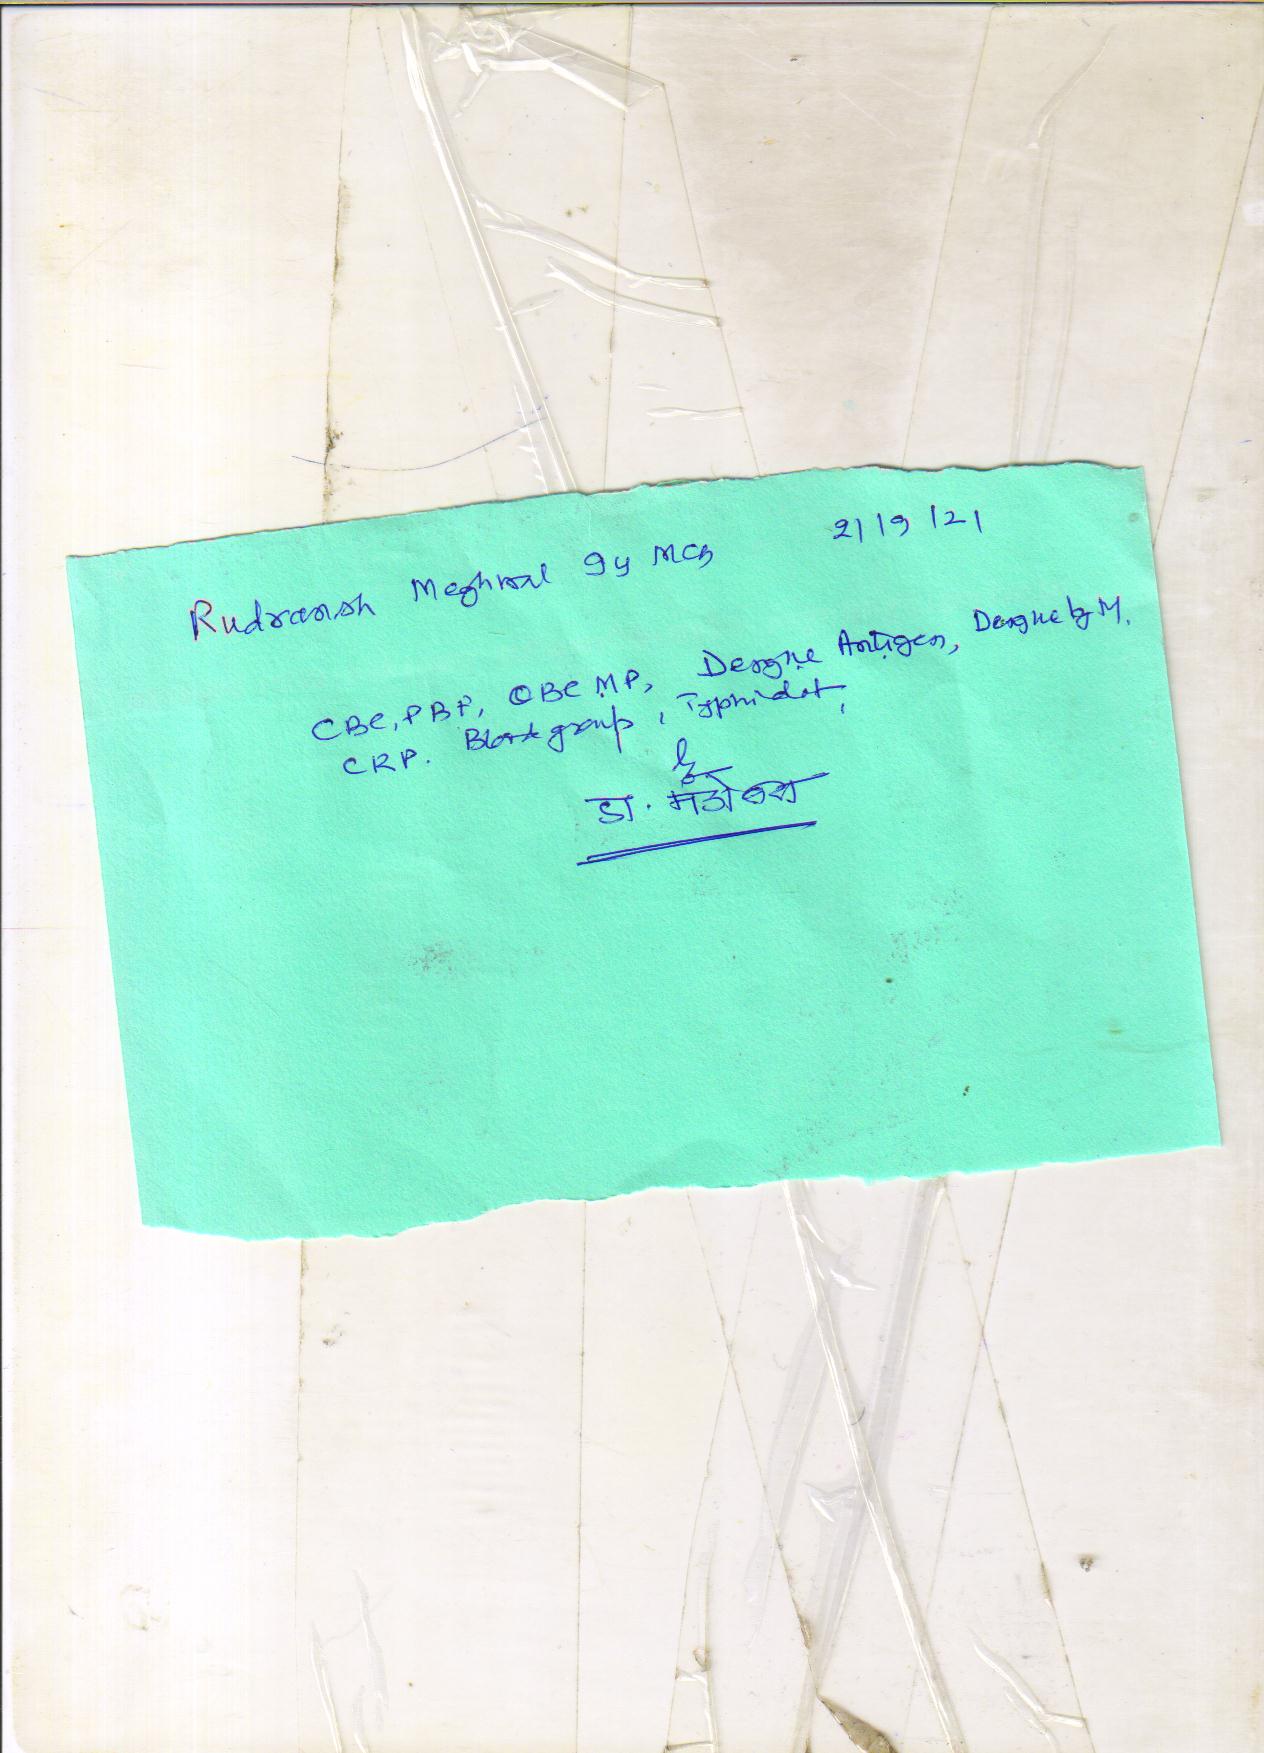 Rudransh Meghwal 9y MCh 21/9/21
CBC, PBF, QBC MP, Dengue Antigen, Dengue Ig M.
CRP. Blood group, Typhidot,
डा.